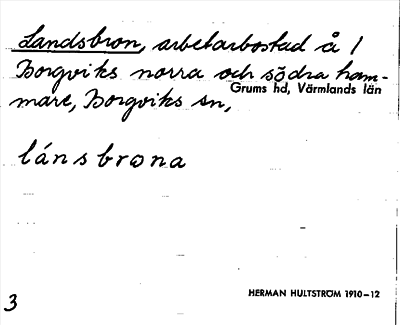 Landsbron, arbetarbostad å 1
Borgviks norra och södra ham-
mare, Borgviks sn,
Grums hd, Värmlands län
lánsbrona
3
HERMAN HULTSTRÖM 1910–12